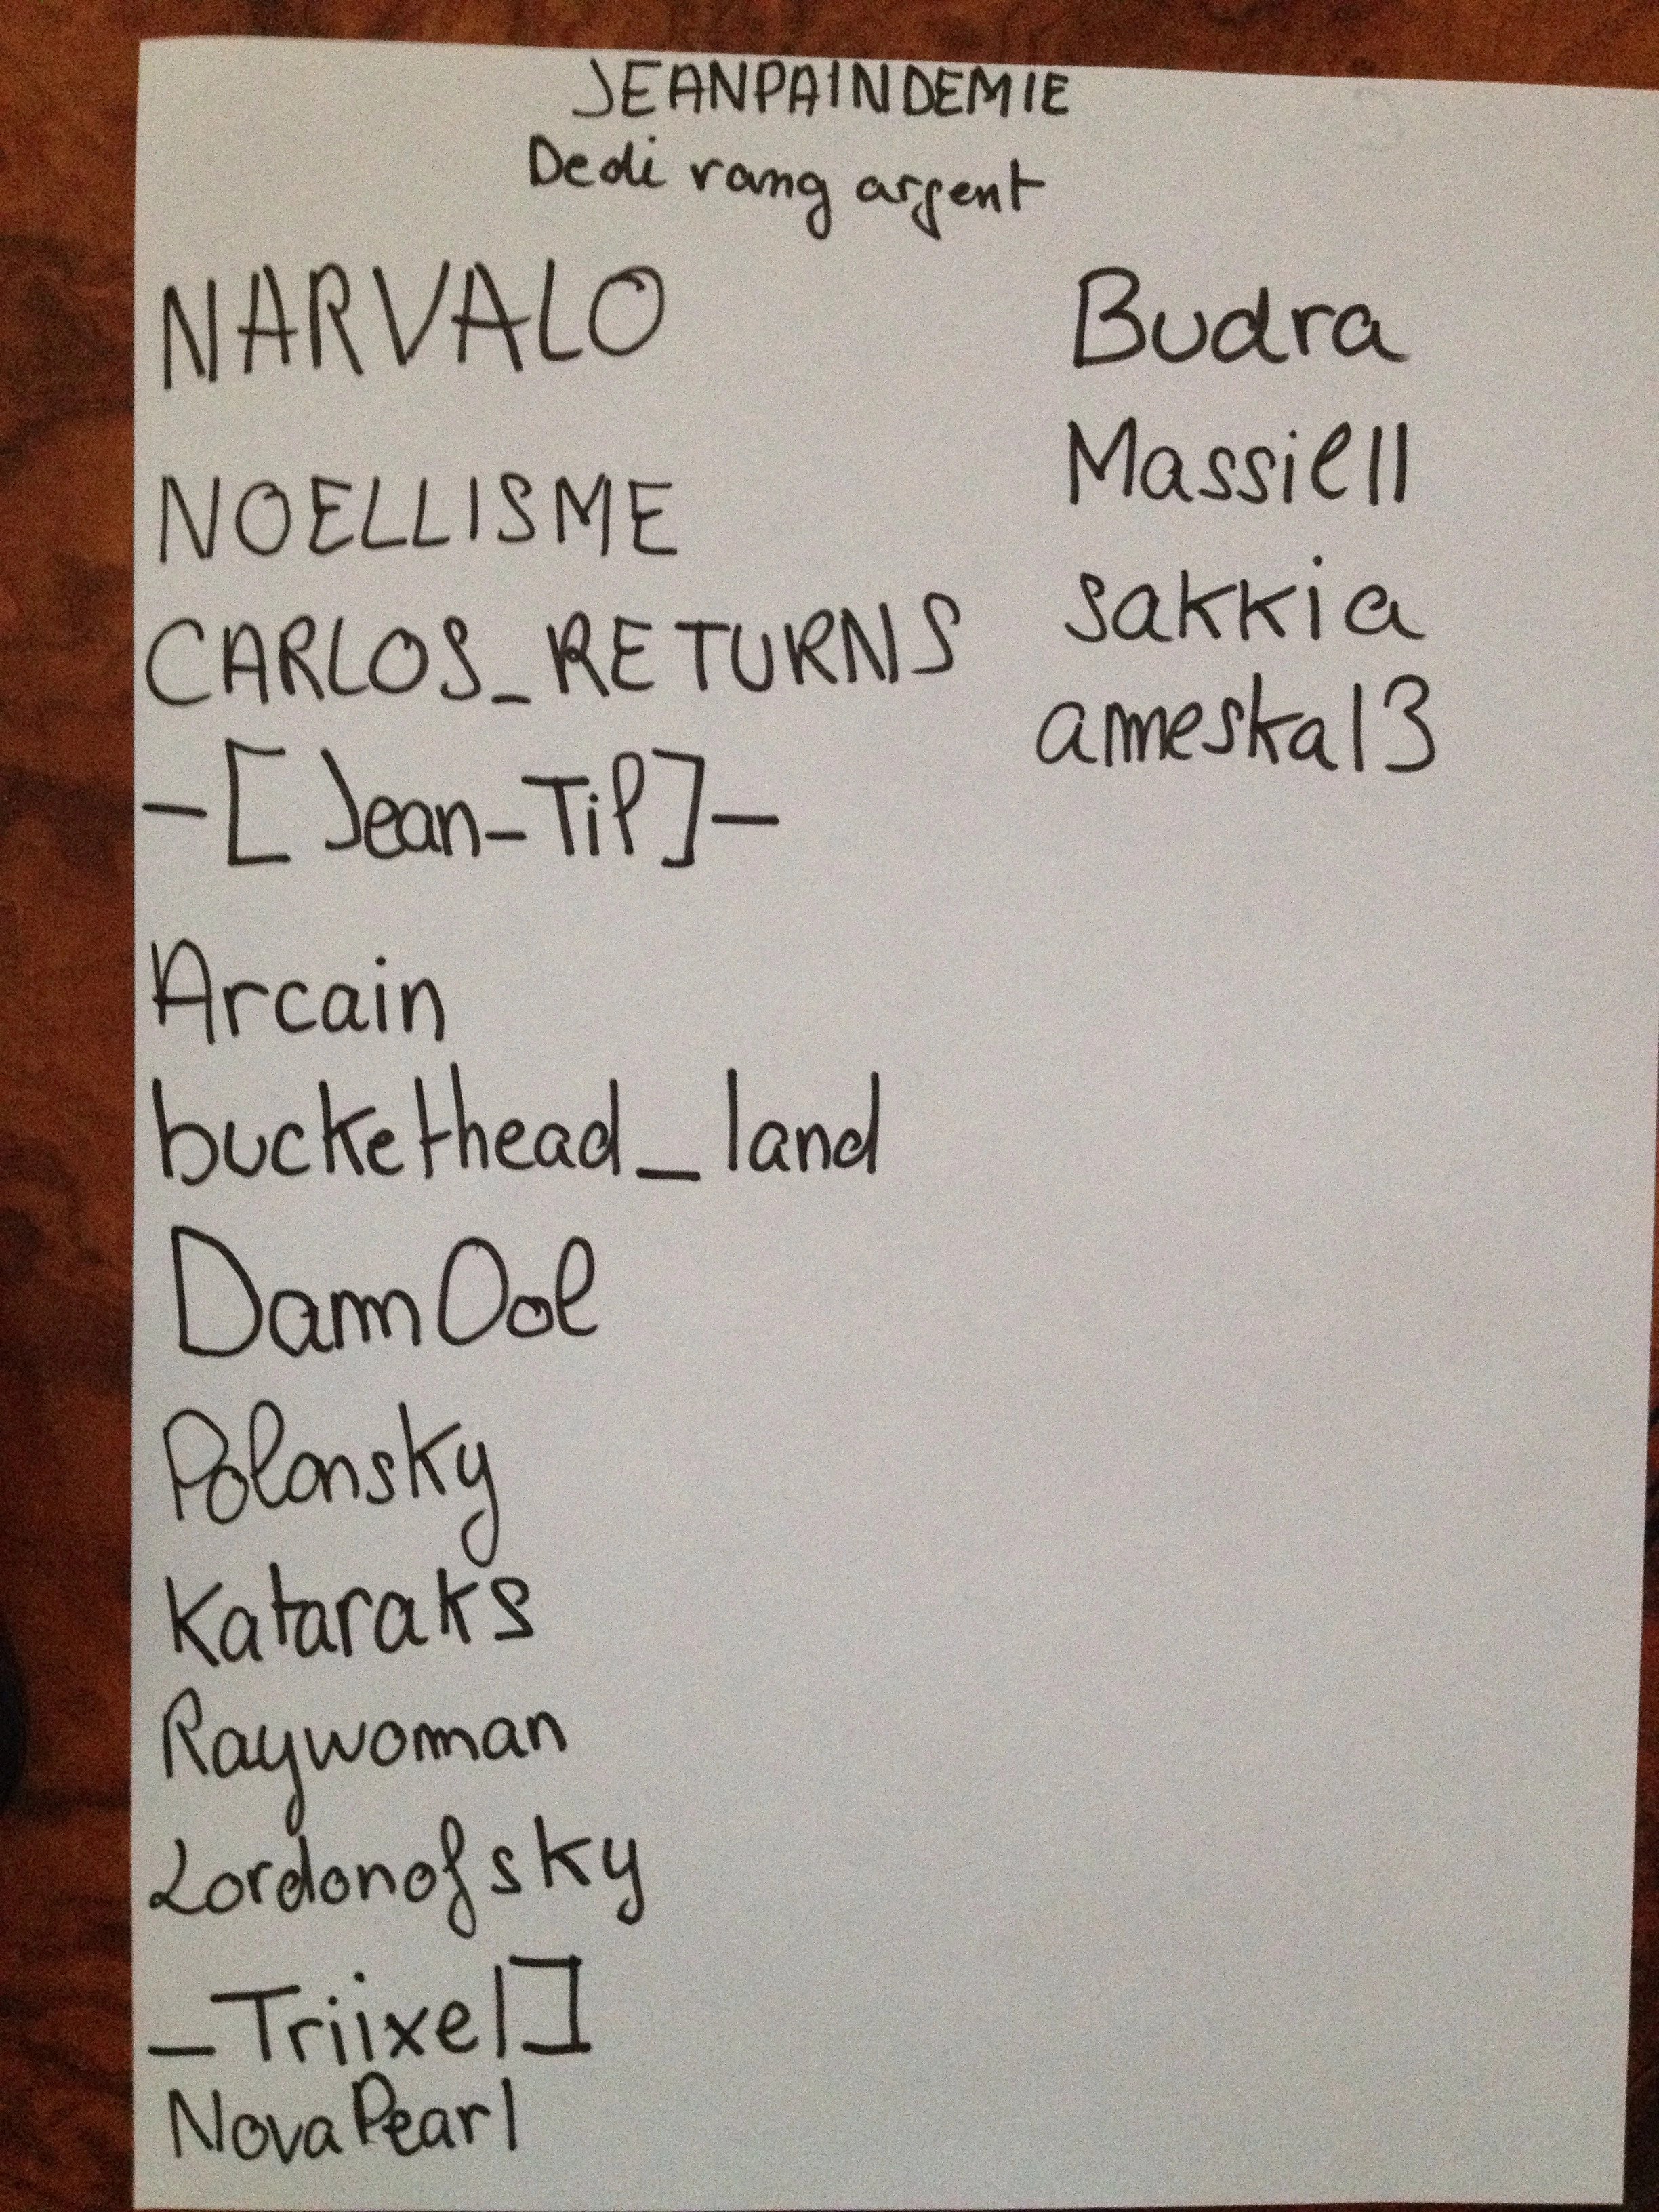 JEANPAINDEMIE
Dedi rang argent
NARVALO
NOELLISME
CARLOS_RETURNS
-[Jean-Til]-
Arcain
buckethead_land
DamnOol
Polonsky
Kataraks
Raywoman
Lordonofsky
_Triixel]
NovaPearl
Budra
Massiel11
sakkia
ameska13